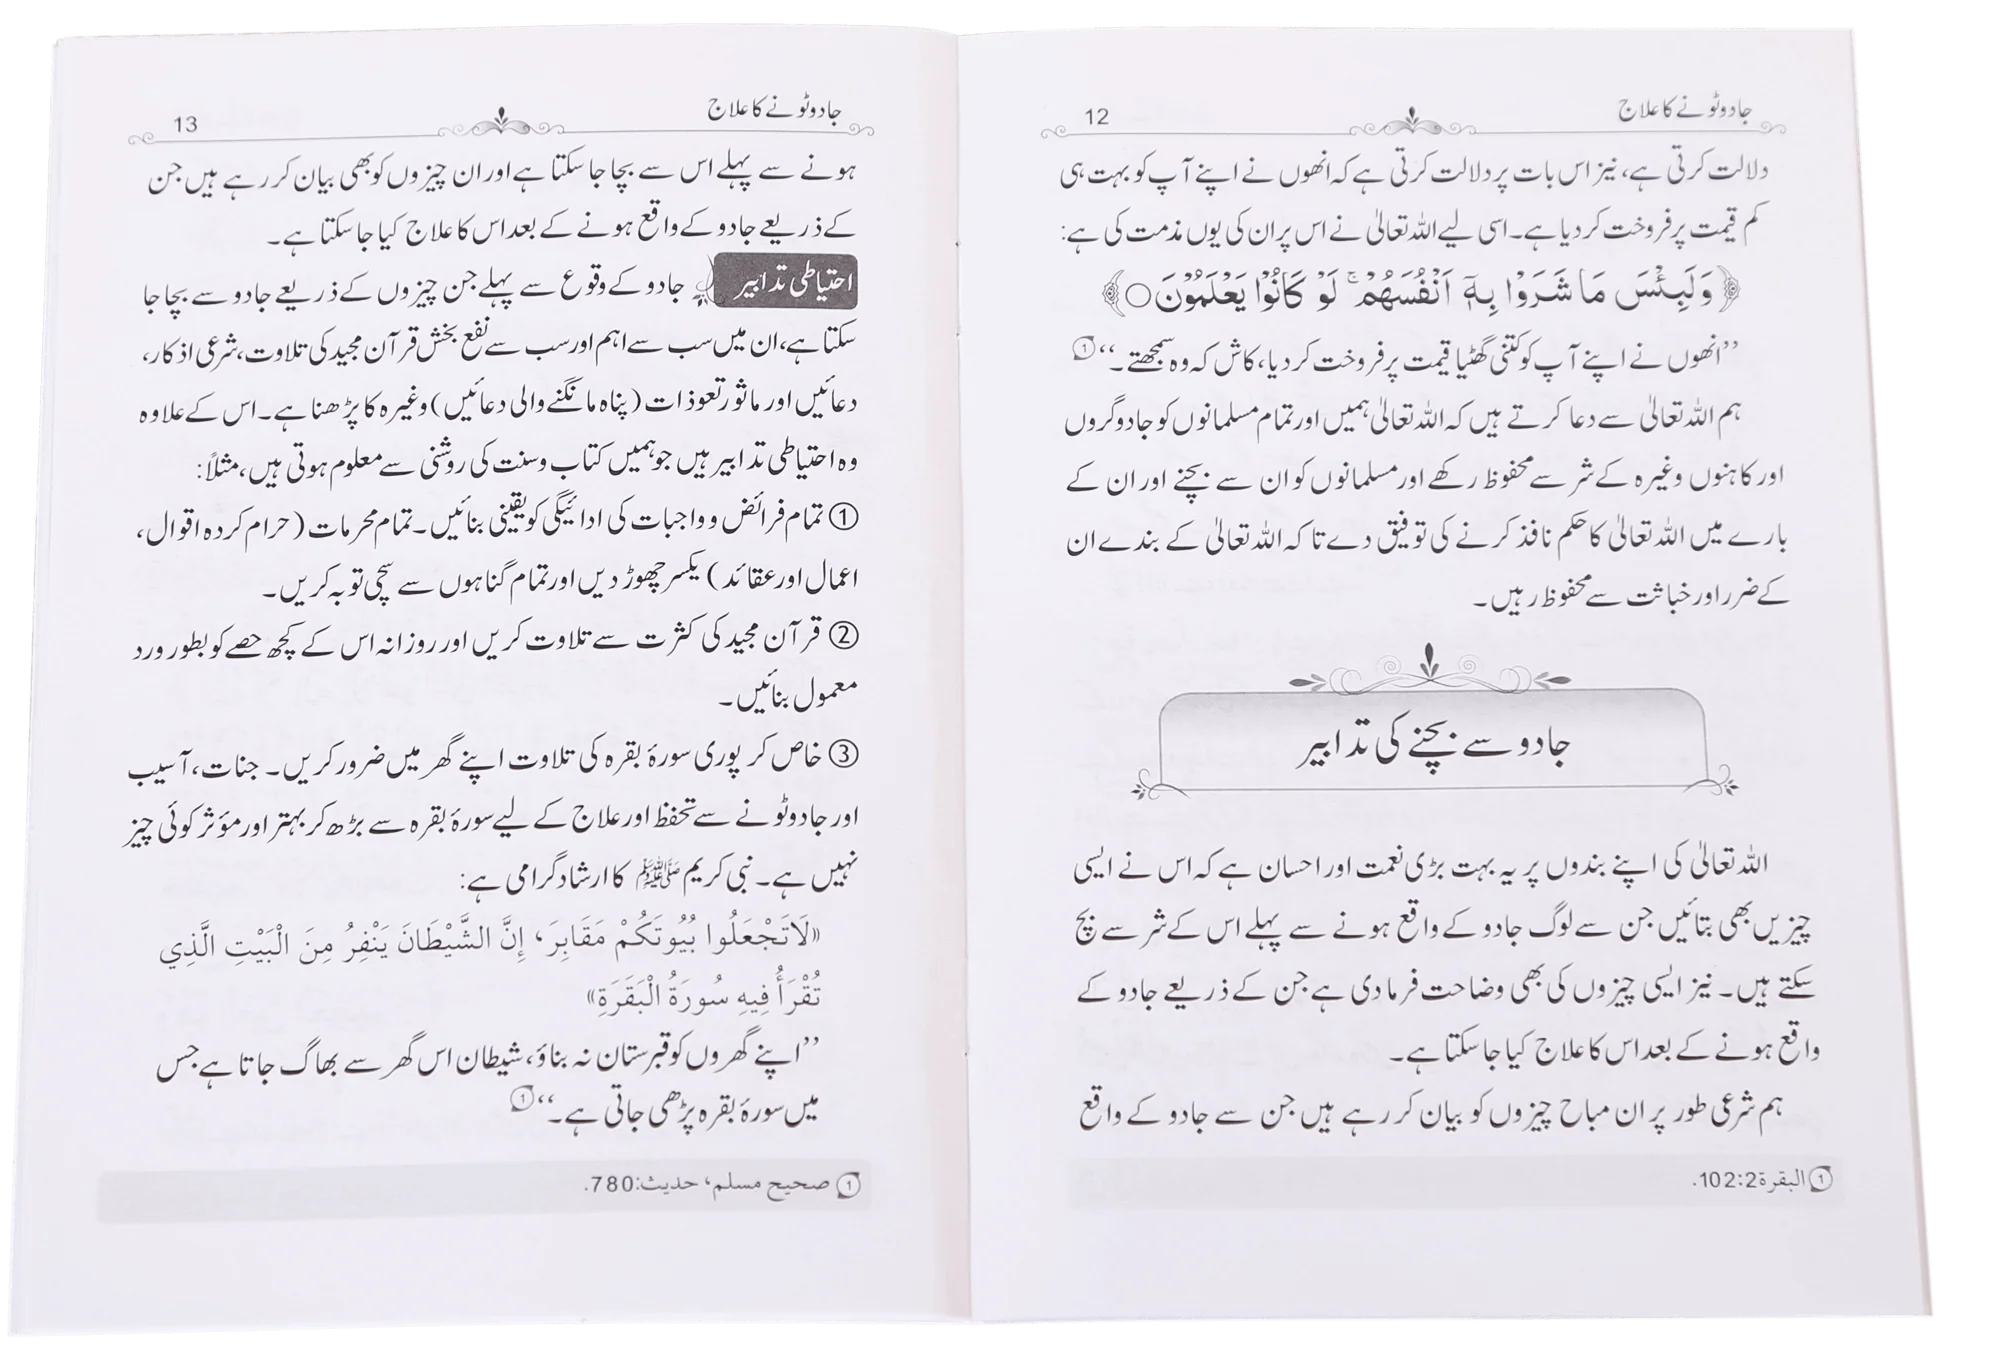 جادو ٹونے کا علاج 12
دلالت کرتی ہے، نیز اس بات پر دلالت کرتی ہے کہ انھوں نے اپنے آپ کو بہت ہی
کم قیمت پر فروخت کر دیا ہے۔ اسی لیے اللہ تعالیٰ نے اس پر ان کی یوں مذمت کی ہے:
﴿وَلَبِئْسَ مَا شَرَوْا بِهٖٓ اَنْفُسَهُمْ ۚ لَوْ كَانُوْا يَعْلَمُوْنَ○﴾
’’انھوں نے اپنے آپ کو کتنی گھٹیا قیمت پر فروخت کر دیا، کاش کہ وہ سمجھتے۔‘‘ ①
ہم اللہ تعالیٰ سے دعا کرتے ہیں کہ اللہ تعالیٰ ہمیں اور تمام مسلمانوں کو جادوگروں
اور کاہنوں وغیرہ کے شر سے محفوظ رکھے اور مسلمانوں کو ان سے بچنے اور ان کے
بارے میں اللہ تعالیٰ کا حکم نافذ کرنے کی توفیق دے تا کہ اللہ تعالیٰ کے بندے ان
کے ضرر اور خباثت سے محفوظ رہیں۔
جادو سے بچنے کی تدابیر
اللہ تعالیٰ کی اپنے بندوں پر یہ بہت بڑی نعمت اور احسان ہے کہ اس نے ایسی
چیزیں بھی بتائیں جن سے لوگ جادو کے واقع ہونے سے پہلے اس کے شر سے بچ
سکتے ہیں۔ نیز ایسی چیزوں کی بھی وضاحت فرما دی ہے جن کے ذریعے جادو کے
واقع ہونے کے بعد اس کا علاج کیا جا سکتا ہے۔
ہم شرعی طور پر ان مباح چیزوں کو بیان کر رہے ہیں جن سے جادو کے واقع
① البقرة 2:102.
جادو ٹونے کا علاج 13
ہونے سے پہلے اس سے بچا جا سکتا ہے اور ان چیزوں کو بھی بیان کر رہے ہیں جن
کے ذریعے جادو کے واقع ہونے کے بعد اس کا علاج کیا جا سکتا ہے۔
احتیاطی تدابیر جادو کے وقوع سے پہلے جن چیزوں کے ذریعے جادو سے بچا جا
سکتا ہے، ان میں سب سے اہم اور سب سے نفع بخش قرآن مجید کی تلاوت، شرعی اذکار،
دعائیں اور ماثور تعوذات (پناہ مانگنے والی دعائیں) وغیرہ کا پڑھنا ہے۔ اس کے علاوہ
وہ احتیاطی تدابیر ہیں جو ہمیں کتاب و سنت کی روشنی سے معلوم ہوتی ہیں، مثلاً:
① تمام فرائض و واجبات کی ادائیگی کو یقینی بنائیں۔ تمام محرمات (حرام کردہ اقوال،
اعمال اور عقائد) یکسر چھوڑ دیں اور تمام گناہوں سے سچی توبہ کریں۔
② قرآن مجید کی کثرت سے تلاوت کریں اور روزانہ اس کے کچھ حصے کو بطور ورد
معمول بنائیں۔
③ خاص کر پوری سورۂ بقرہ کی تلاوت اپنے گھر میں ضرور کریں۔ جنات، آسیب
اور جادو ٹونے سے تحفظ اور علاج کے لیے سورۂ بقرہ سے بڑھ کر بہتر اور مؤثر کوئی چیز
نہیں ہے۔ نبی کریم ﷺ کا ارشاد گرامی ہے:
«لَاتَجْعَلُوا بُيُوتَكُمْ مَقَابِرَ، إِنَّ الشَّيْطَانَ يَنْفِرُ مِنَ الْبَيْتِ الَّذِي
تُقْرَأُ فِيهِ سُورَةُ الْبَقَرَةِ»
’’اپنے گھروں کو قبرستان نہ بناؤ، شیطان اس گھر سے بھاگ جاتا ہے جس
میں سورۂ بقرہ پڑھی جاتی ہے۔‘‘ ①
① صحیح مسلم، حدیث: 780.